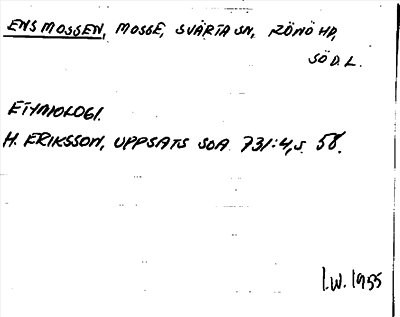 ENSMOSSEN, MOSSE, SVÄRTA SN, RÖNÖ HD,
SÖD.L.
ETYMOLOGI.
H. ERIKSSON, UPPSATS SOA 731:4, S. 58.
I.W. 1955